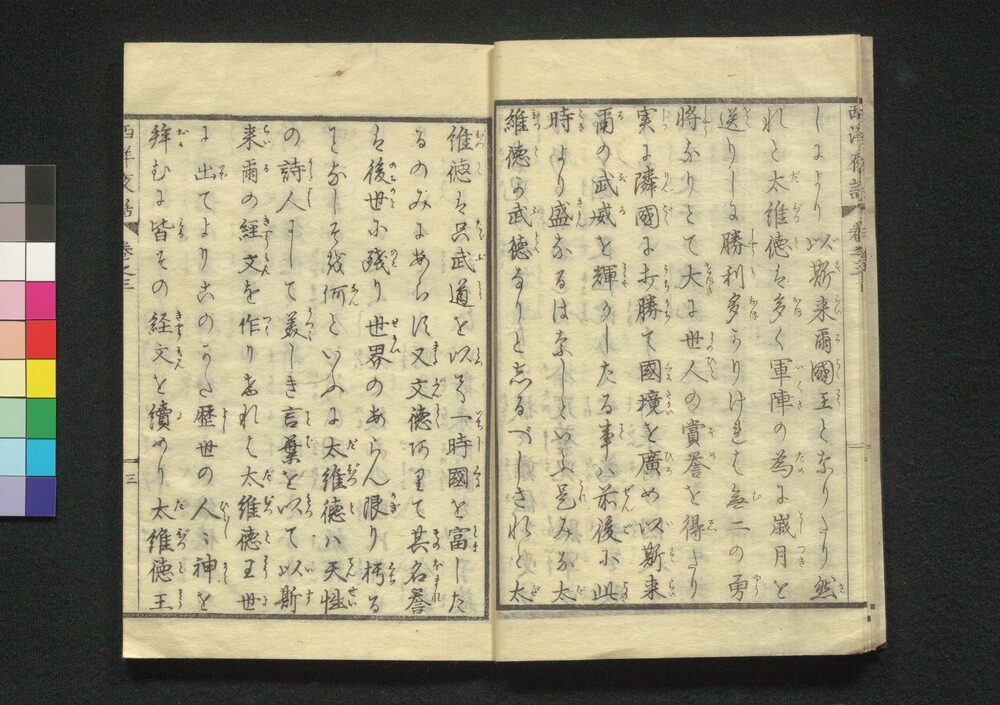 しにより以斯来爾國王となりたり然
れと太維徳は多く軍陣の為に歳月を
送りしに勝利多かりければ無二の勇
将なりとて大に世人の賞誉を得たり
実に隣國に打勝て國境を廣め以斯来
爾の武威を輝かしたる事ハ前後に此
時より盛なるはなしといふ是みな太
維徳の武徳なりと志るべしされと太
維徳は只武道を以て一時國を富した
るのみにあらす又文徳ありて其名誉
を後世に残り世界のあらん限り朽る
となしそは何といふに太維徳ハ天性
の詩人にして美しき言葉を以て以斯
来爾の経文を作りあれは太維徳王世
に出てよりこのかた歴世の人々神を
拜むに皆その経文を讀めり太維徳王
西洋夜話 巻之三
三